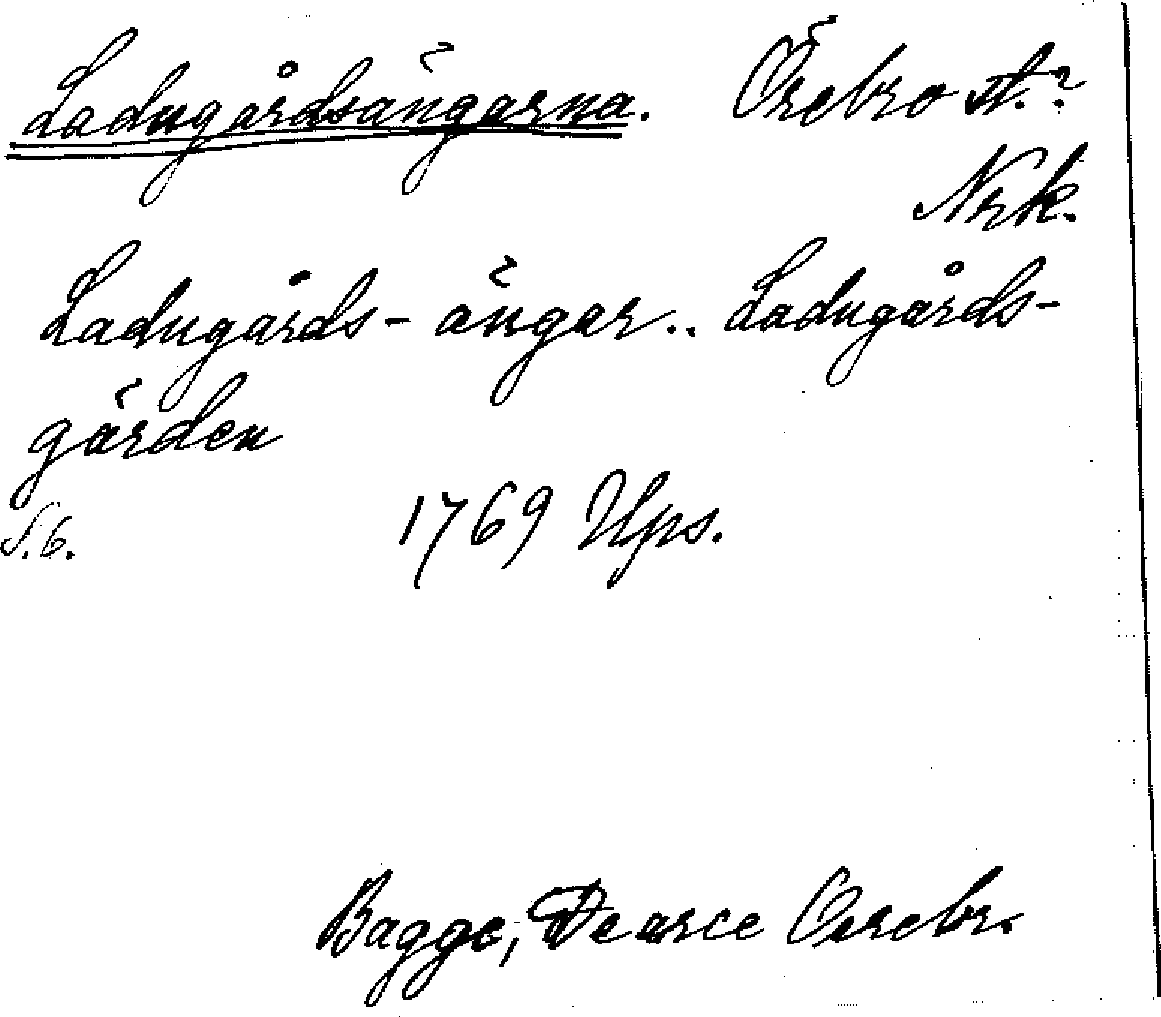 Ladugårdsängarna. Örebro st.?
Nrk.
Ladugårds-ängar.. Ladugårds-
gärden
S.6. 1769 Ups.
Bagge, De arce Oerebr.